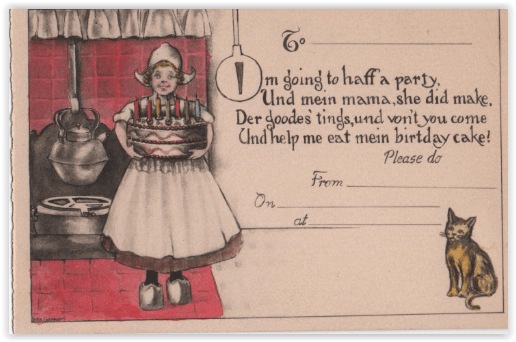 To
I'm going to haff a party,
Und mein mama, she did make,
Der goodes tings, und von't you come
Und help me eat mein birtday cake!
Please do
From
On
at